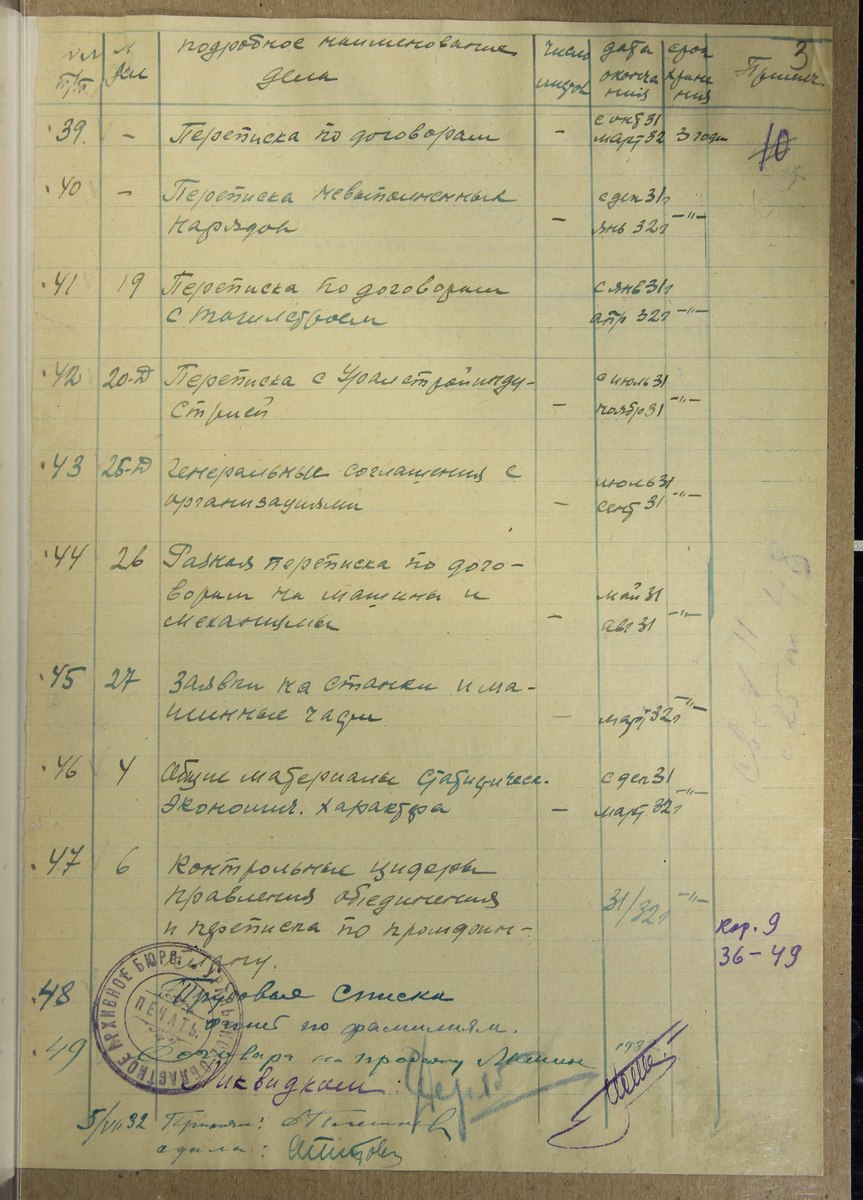 3
№№ п/п № дел подробное наименование дела число листов дата окончания срок хранения Примеч.
39. – Переписка по договорам – с окт 31 март 32 3 года
10
40 – Переписка невыполненных с дек 31г
нарядов – янв 32г –"–
41 19 Переписка по договорам с янв 31г
с Тагилстроем апр 32г –"–
42 20-Д Переписка с Уралстройинду- с июль 31
стрией – ноябр 31 –"–
43 25-Д Генеральные соглашения с июль 31
организациями – сент 31 –"–
44 26 Разная переписка по дого-
ворам на машины и май 31
механизмы – авг 31 –"–
45 27 Заявки на станки и ма-
шинные части – март 32г –"–
46 4 Общие материалы статистическ. с дек 31
экономич. характера – март 32г –"–
47 6 Контрольные цифры
правления объединения 31/32г –"–
и переписка по промфин-
плану.
кор. 9
36–49
48 Трудовые списки
по фамилиям.
49 на продажу машин 193
Ликвидком:
АРХИВНОЕ БЮРО
ОБЛАСТНОЕ
ПЕЧАТЬ
5/VII 32 Принял:
сдала: